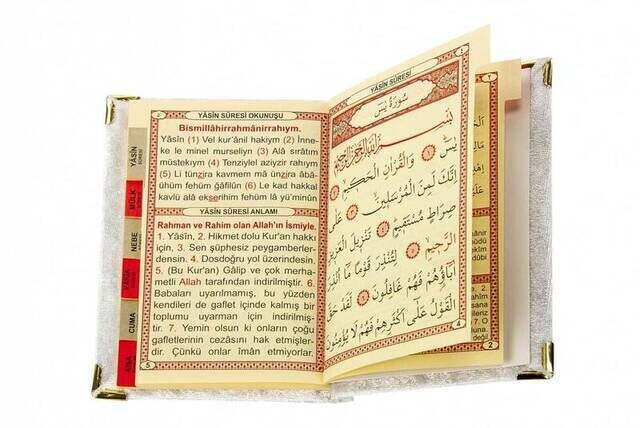 YÂSÎN SÛRESİ OKUNUŞU
Bismillâhirrahmânirrahıym.
Yâsîn (1) Vel kur'ânil hakiym (2) İnne-
ke le minel murseliyn (3) Alâ sırâtım
müstekıym (4) Tenziylel aziyzir rahıym
(5) Li tünzira kavmem mâ ünzira âbâ-
ühüm fehüm ğâfilûn (6) Le kad hakkal
kavlü alâ ekserihim fehüm lâ yü'minûn
YÂSÎN SÛRESİ ANLAMI
Rahman ve Rahim olan Allah'ın İsmiyle.
1. Yâsîn, 2. Hikmet dolu Kur'an hakkı
için, 3. Sen şüphesiz peygamberler-
densin. 4. Dosdoğru yol üzerindesin.
5. (Bu Kur'an) Gâlip ve çok merha-
metli Allah tarafından indirilmiştir. 6.
Babaları uyarılmamış, bu yüzden
kendileri de gaflet içinde kalmış bir
toplumu uyarman için indirilmiş-
tir. 7. Yemin olsun ki onların çoğu
gafletlerinin cezasını hak etmişler-
dir. Çünkü onlar îman etmiyorlar.
5
YÂSÎN
MÜLK
NEBE
CUMA
YÂSÎN SÛRESİ
سُورَةُ يٰسٓ
بِسْمِ اللّٰهِ الرَّحْمٰنِ الرَّحِيمِ
يٰسٓ ﴿١﴾ وَالْقُرْاٰنِ الْحَكِيمِ ﴿٢﴾
اِنَّكَ لَمِنَ الْمُرْسَلِينَ ﴿٣﴾ عَلٰى
صِرَاطٍ مُسْتَقِيمٍ ﴿٤﴾ تَنْزِيلَ الْعَزِيزِ
الرَّحِيمِ ﴿٥﴾ لِتُنْذِرَ قَوْمًا مَا اُنْذِرَ
اٰبَاؤُهُمْ فَهُمْ غَافِلُونَ ﴿٦﴾ لَقَدْ حَقَّ
الْقَوْلُ عَلٰى اَكْثَرِهِمْ فَهُمْ لَا يُؤْمِنُونَ
4
2